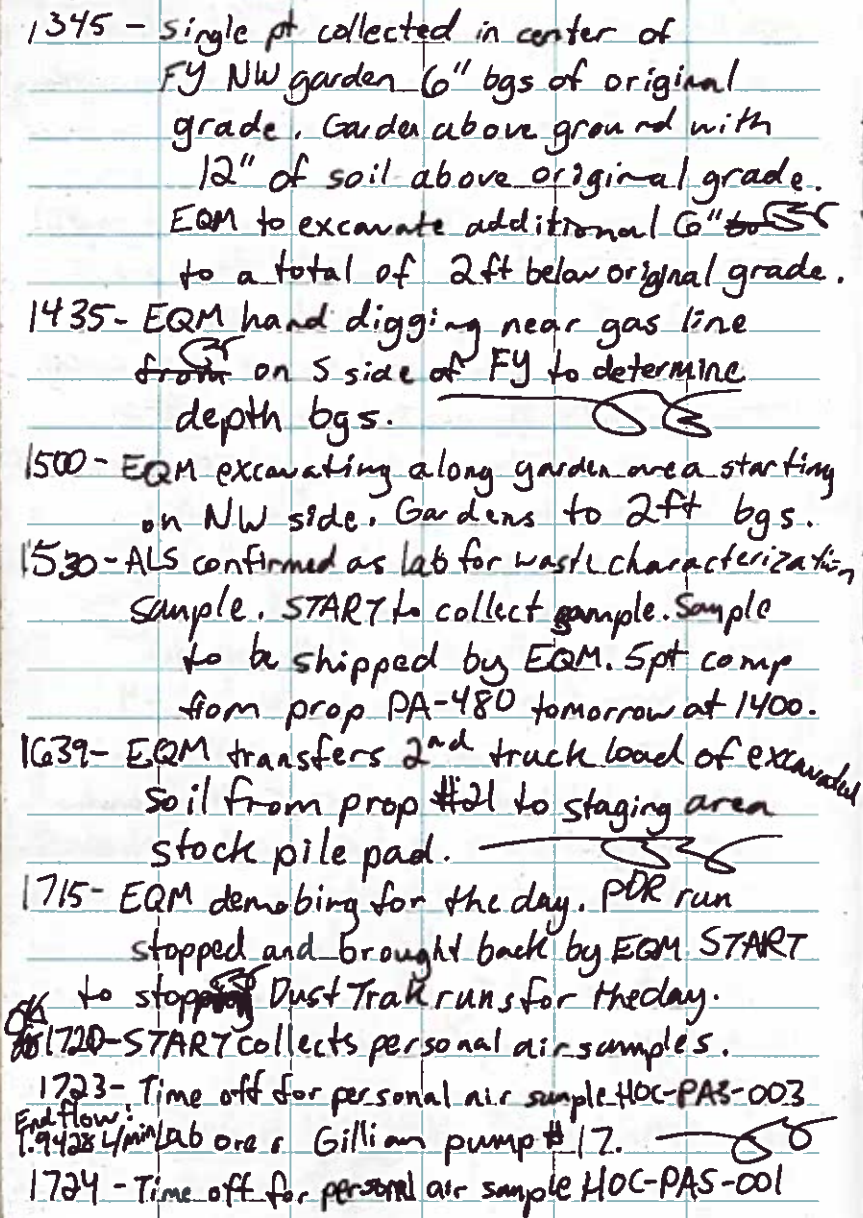 1345 - Single pt collected in center of
FY NW garden 6" bgs of original
grade. Garden above ground with
12" of soil above original grade.
EQM to excavate additional 6"
to a total of 2ft below original grade.
1435- EQM hand digging near gas line
from on S side of FY to determine
depth bgs.
1500- EQM excavating along garden area starting
on NW side. Gardens to 2ft bgs.
1530- ALS confirmed as lab for waste characterization
sample. START to collect sample. Sample
to be shipped by EQM. 5pt comp
from prop PA-480 tomorrow at 1400.
1639- EQM transfers 2nd truck load of excavated
soil from prop #21 to staging area
stock pile pad.
1715- EQM demobing for the day. pDR run
stopped and brought back by EQM START
to stop Dust Trak runs for the day.
1720-START collects personal air samples.
1723- Time off for personal air sample HOC-PAS-003
End flow:
1.9428 L/min Gillian pump # 17.
1724 - Time off for personal air sample HOC-PAS-001